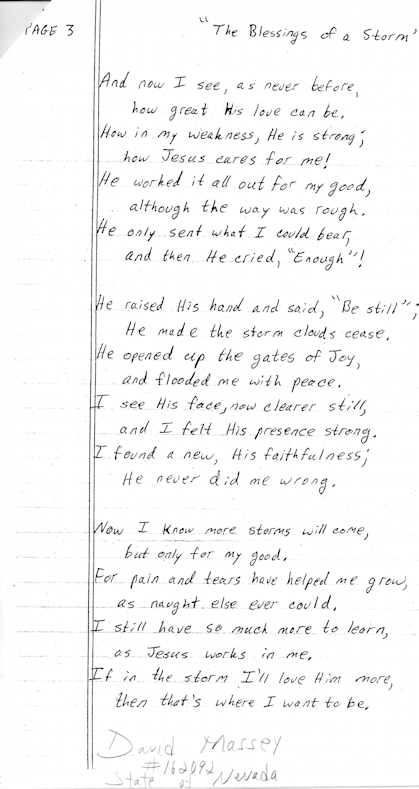 PAGE 3 "The Blessings of a Storm"
And now I see, as never before,
how great His love can be.
How in my weakness, He is strong;
how Jesus cares for me!
He worked it all out for my good,
although the way was rough.
He only sent what I could bear,
and then He cried, "Enough"!
He raised His hand and said, "Be still";
He made the storm clouds cease.
He opened up the gates of Joy,
and flooded me with peace.
I see His face, now clearer still,
and I felt His presence strong.
I found a new, His faithfulness;
He never did me wrong.
Now I know more storms will come,
but only for my good.
For pain and tears have helped me grow,
as naught else ever could.
I still have so much more to learn,
as Jesus works in me.
If in the storm I'll love Him more,
then that's where I want to be.
David Massey
#162092
State of Nevada